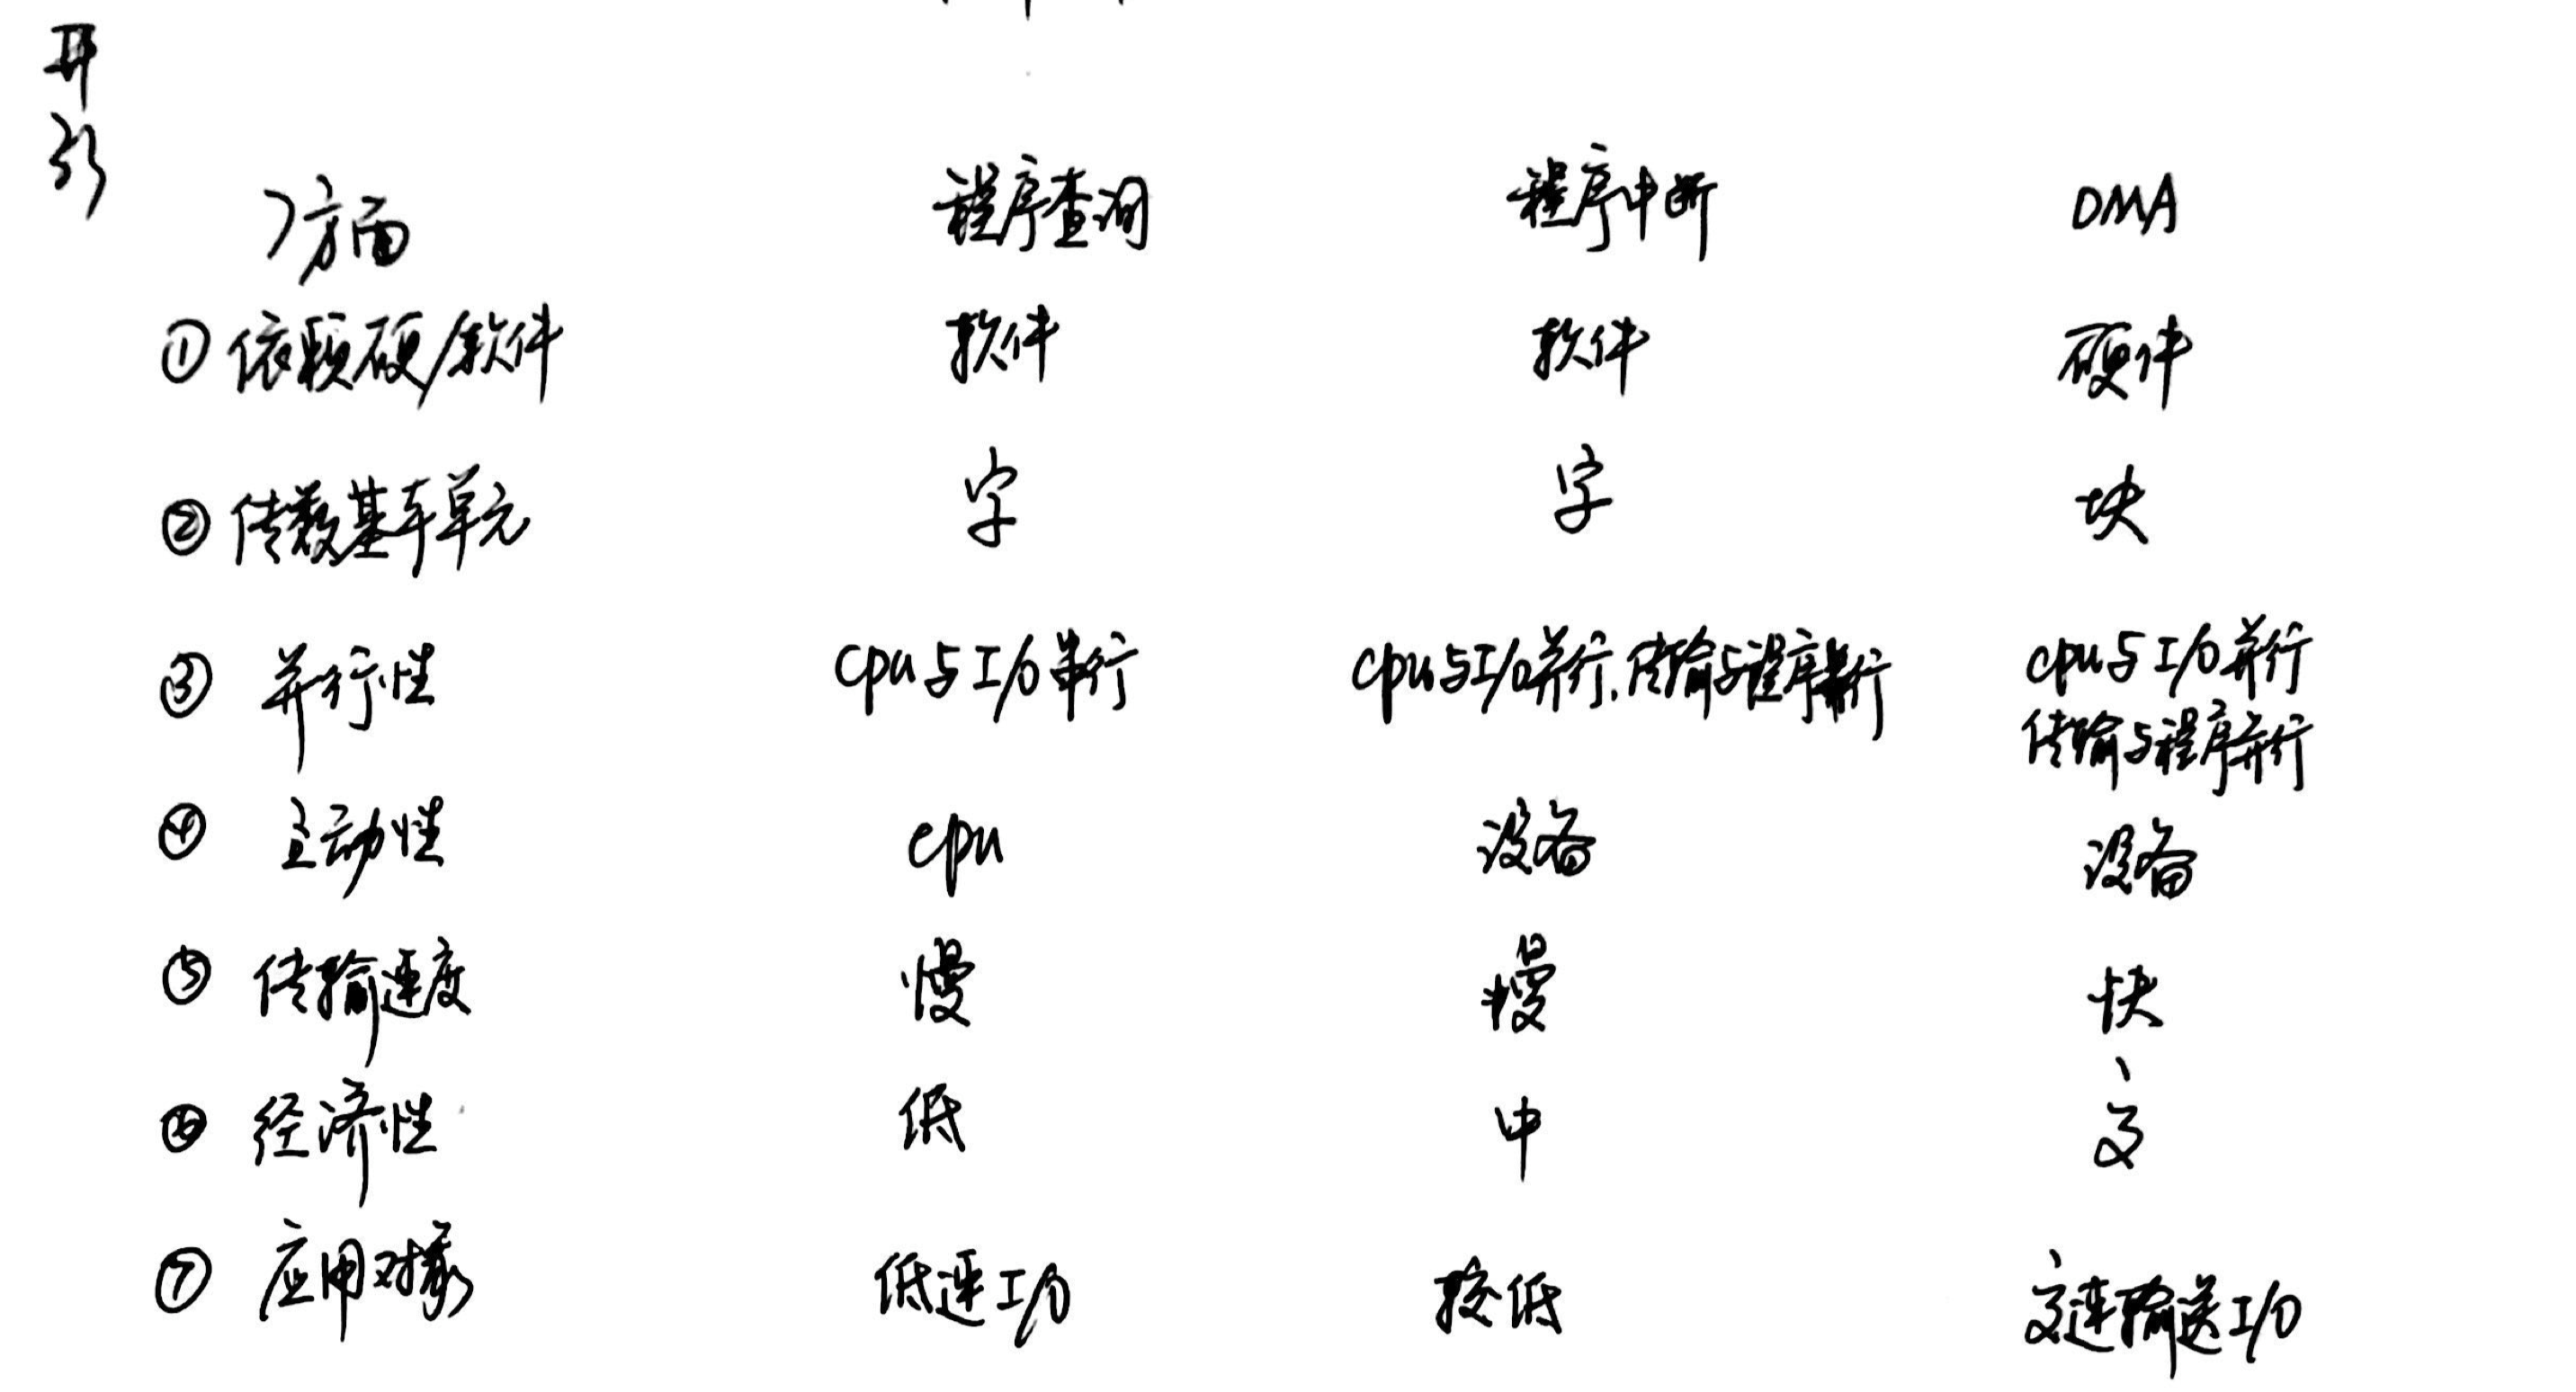 7方面 程序查询 程序中断 DMA
① 依赖硬/软件 软件 软件 硬件
② 传数基本单元 字 字 块
③ 并行性 cpu与I/O串行 cpu与I/O并行,传输与程序串行 cpu与I/O并行
传输与程序并行
④ 主动性 cpu 设备 设备
⑤ 传输速度 慢 慢 快
⑥ 经济性 低 中 高
⑦ 应用对象 低速I/O 较低 高速输送I/O